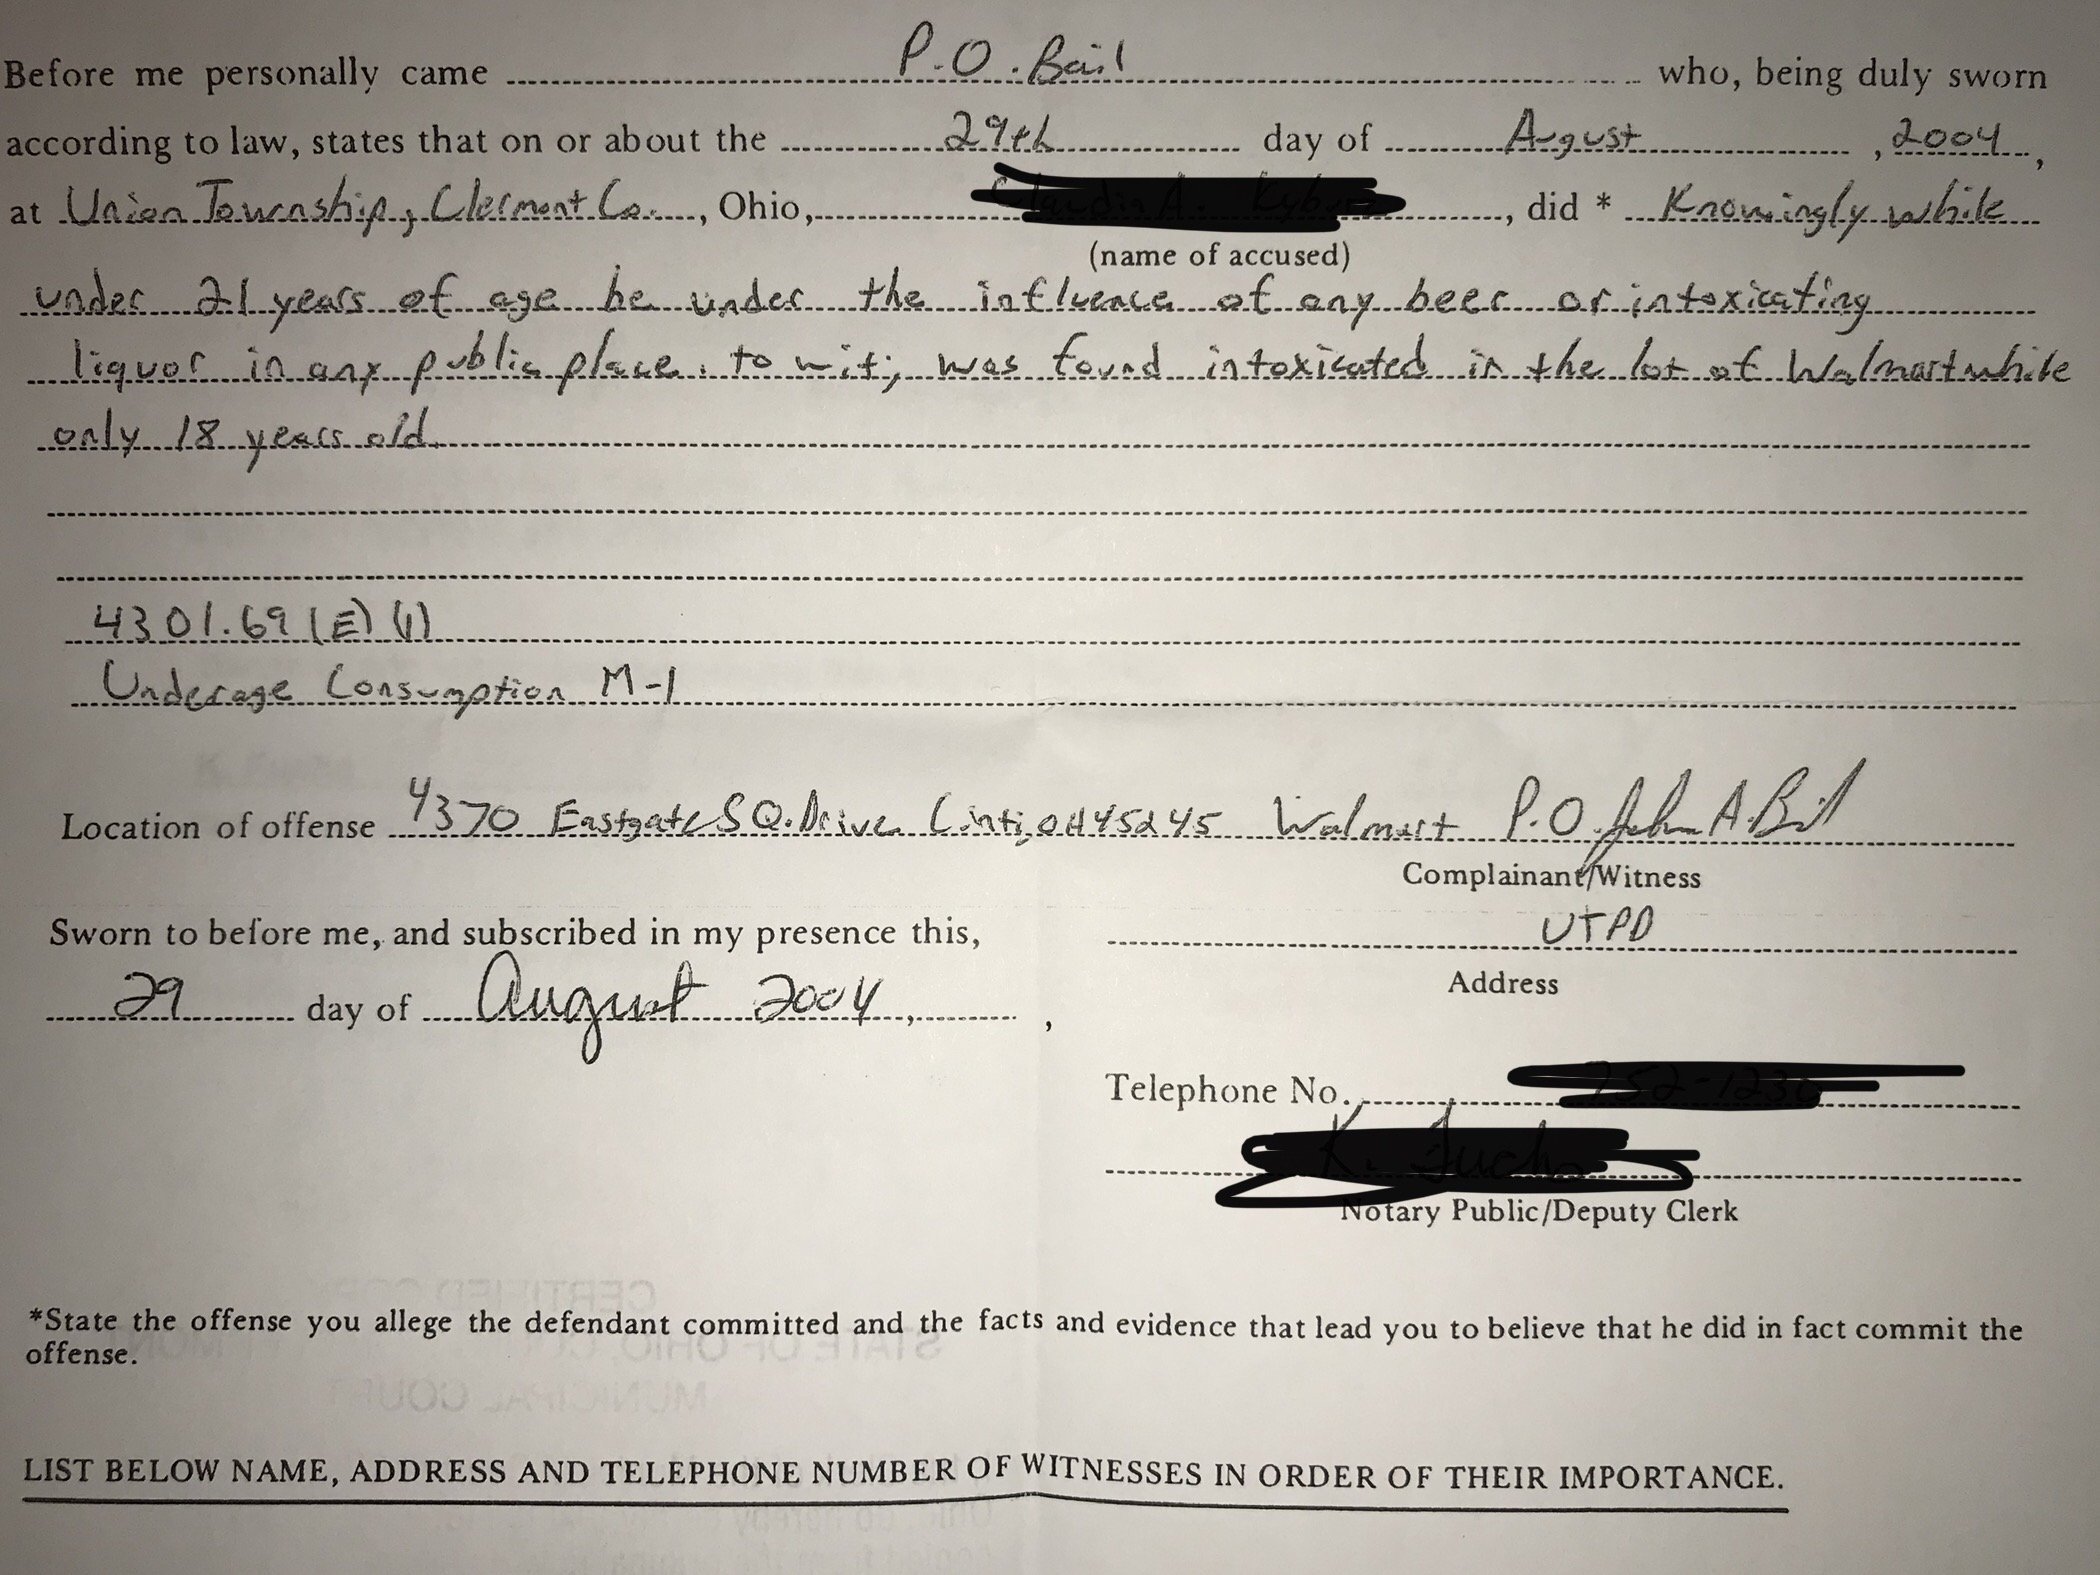 Before me personally came P.O. Bail who, being duly sworn
according to law, states that on or about the 29th day of August, 2004,
at Union Township, Clermont Co., Ohio, did * Knowingly while
(name of accused)
under 21 years of age be under the influence of any beer or intoxicating
liquor in any public place. to wit; was found intoxicated in the lot of Walmart while
only 18 years old.
4301.69 (E) (1)
Underage Consumption M-1
Location of offense 4370 Eastgate SQ. Drive Cinti, OH 45245 Walmart P.O. John A. Bail
Complainant/Witness
Sworn to before me, and subscribed in my presence this,
UTPD
Address
29 day of August 2004,
Telephone No.
Notary Public/Deputy Clerk
*State the offense you allege the defendant committed and the facts and evidence that lead you to believe that he did in fact commit the
offense.
LIST BELOW NAME, ADDRESS AND TELEPHONE NUMBER OF WITNESSES IN ORDER OF THEIR IMPORTANCE.